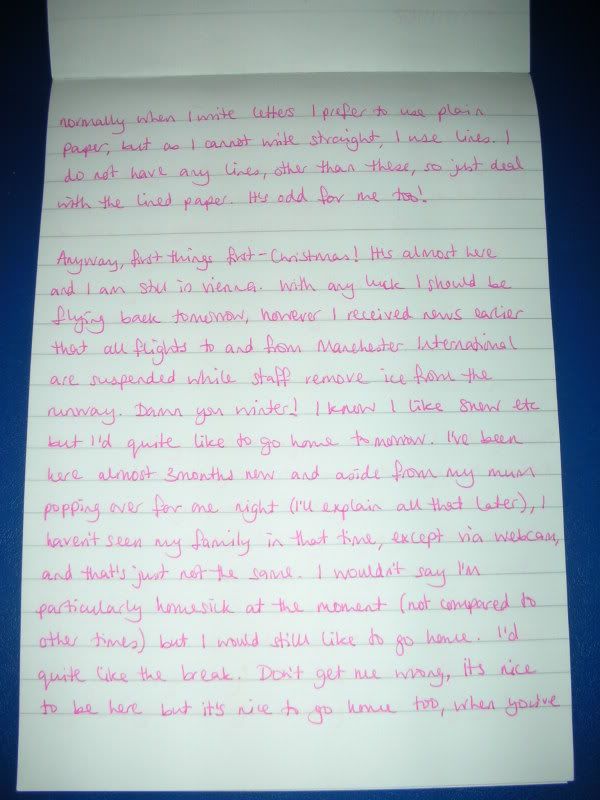 normally when I write letters I prefer to use plain
paper, but as I cannot write straight, I use lines. I
do not have any lines, other than these, so just deal
with the lined paper. It's odd for me too!
Anyway, first things first - Christmas! It's almost here
and I am still in vienna. With any luck I should be
flying back tomorrow, however I received news earlier
that all flights to and from Manchester International
are suspended while staff remove ice from the
runway. Damn you winter! I know I like snow etc
but I'd quite like to go home tomorrow. I've been
here almost 3months now and aside from my mum
popping over for one night (I'll explain all that later), I
haven't seen my family in that time, except via webcam,
and that's just not the same. I wouldn't say I'm
particularly homesick at the moment (not compared to
other times) but I would still like to go home. I'd
quite like the break. Don't get me wrong, its nice
to be here but it's nice to go home too, when you've